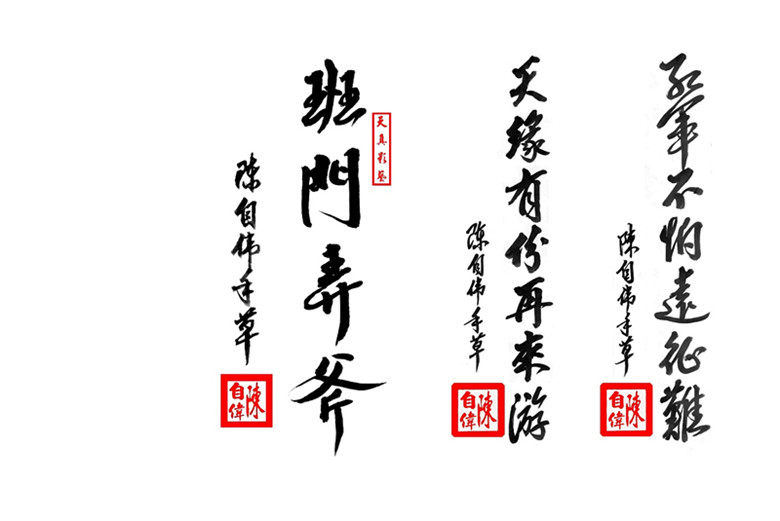 紅軍不怕遠征難
陳自偉手草
陳自偉
天緣有份再來游
陳自偉手草
陳自偉
天真影藝
班門弄斧
陳自偉手草
陳自偉